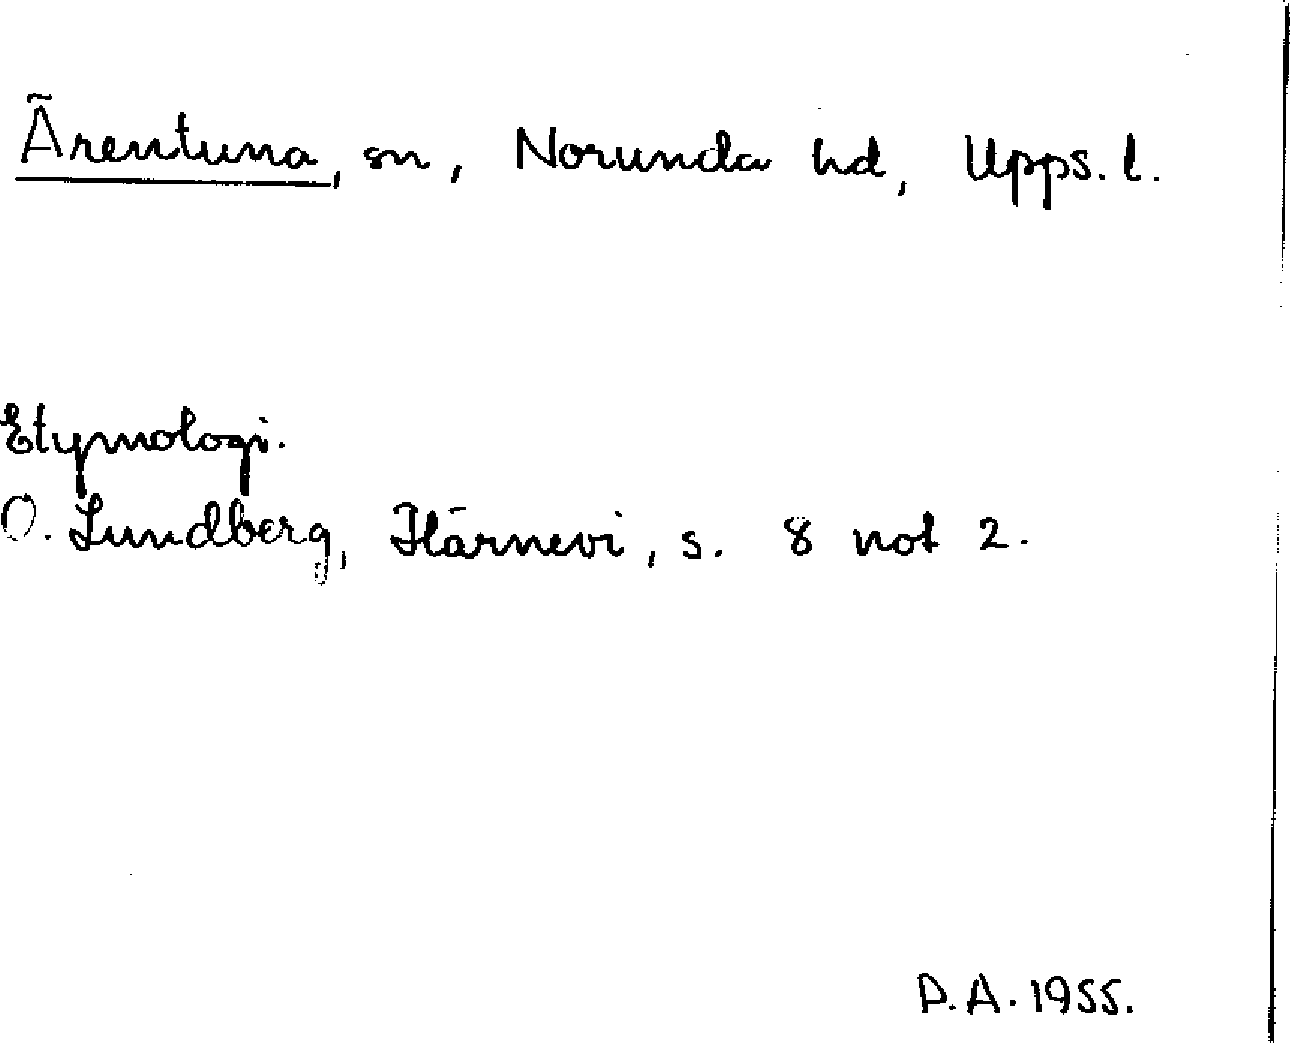 Ärentuna, sn, Norunda hd, Upps. l.
Etymologi.
O. Lundberg, Härnevi, s. 8 not 2.
D.A. 1955.